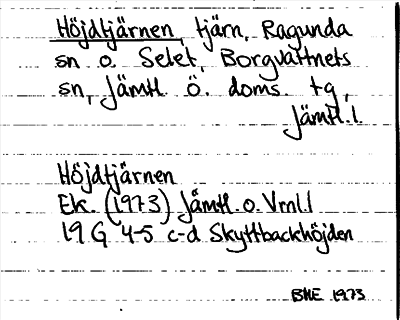 Höjdtjärnen, tjärn, Ragunda
sn o. Selet, Borgvattnets
sn, Jämtl. ö. doms. tg,
Jämtl. l.
Höjdtjärnen
Ek. (1973) Jämtl. o. Vrnl. l
19 G 4-5 c-d Skyttbackhöjden
BME 1973